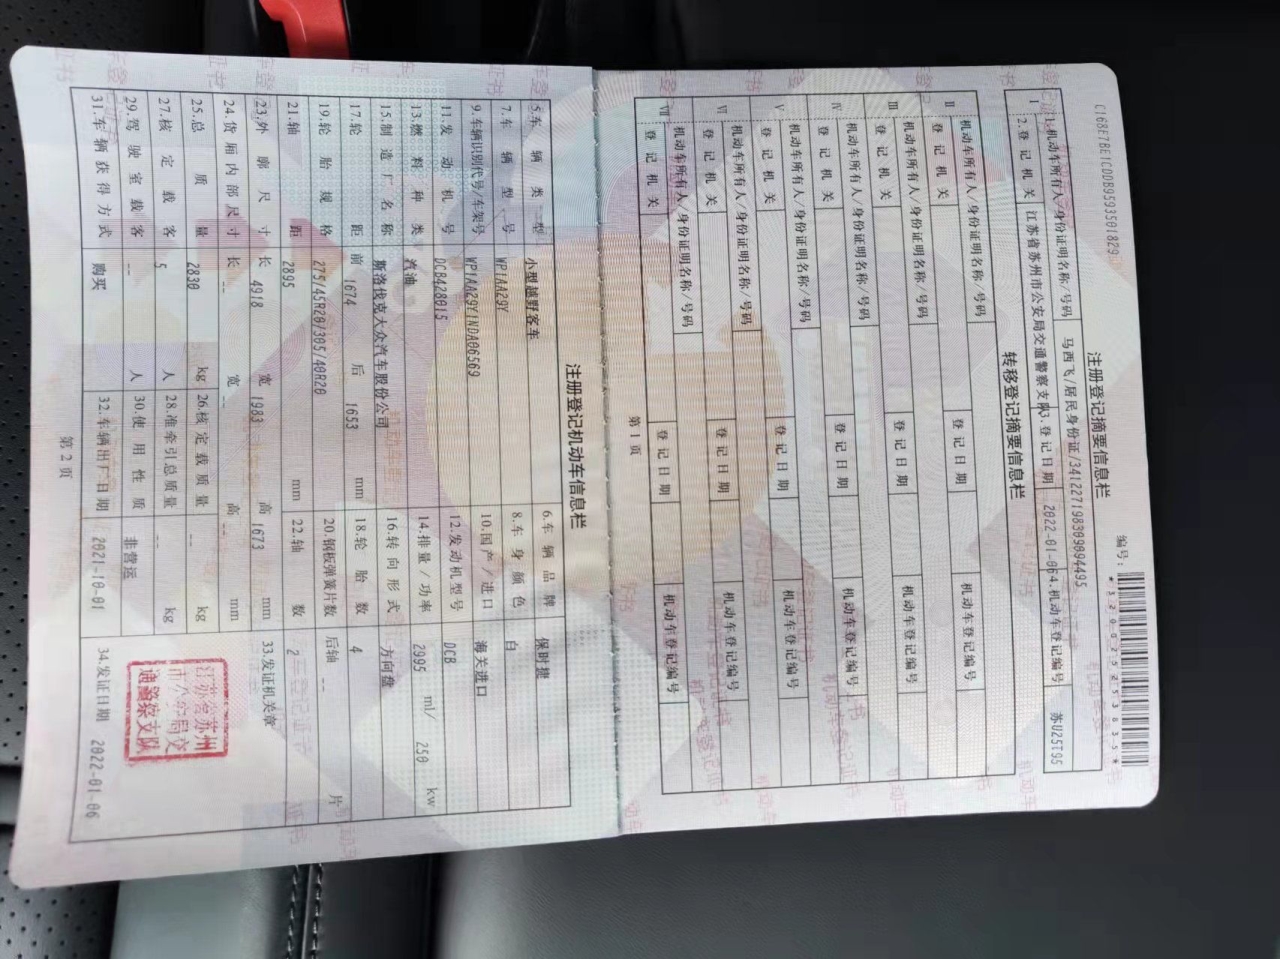 C168E7BE1C0DB9593501829
编号:
*320025253035*
注册登记摘要信息栏
I 1.机动车所有人/身份证明名称/号码 马西飞/居民身份证/341227198309094495
2.登记机关 江苏省苏州市公安局交通警察支队 3.登记日期 2022-01-06 4.机动车登记编号 苏U25T95
转移登记摘要信息栏
II 机动车所有人/身份证明名称/号码
登记机关 登记日期 机动车登记编号
III 机动车所有人/身份证明名称/号码
登记机关 登记日期 机动车登记编号
IV 机动车所有人/身份证明名称/号码
登记机关 登记日期 机动车登记编号
V 机动车所有人/身份证明名称/号码
登记机关 登记日期 机动车登记编号
VI 机动车所有人/身份证明名称/号码
登记机关 登记日期 机动车登记编号
VII 机动车所有人/身份证明名称/号码
登记机关 登记日期 机动车登记编号
第1页
注册登记机动车信息栏
5.车辆类型 小型越野客车 6.车辆品牌 保时捷
7.车辆型号 WP1AA29Y 8.车身颜色 白
9.车辆识别代号/车架号 WP1AA29Y1NDA06569 10.国产/进口 海关进口
11.发动机号 DCB428015 12.发动机型号 DCB
13.燃料种类 汽油 14.排量/功率 2995 ml/ 250 kw
15.制造厂名称 斯洛伐克大众汽车股份公司 16.转向形式 方向盘
17.轮距 前 1674 后 1653 mm 18.轮胎数 4
19.轮胎规格 275/45R20/305/40R20 20.钢板弹簧片数 后轴 -- 片
21.轴距 2895 mm 22.轴数 2
23.外廓尺寸 长 4918 宽 1983 高 1673 mm 33.发证机关章
24.货厢内部尺寸 长 -- 宽 -- 高 -- mm
25.总质量 2830 kg 26.核定载质量 -- kg
27.核定载客 5 人 28.准牵引总质量 -- kg
29.驾驶室载客 -- 人 30.使用性质 非营运
31.车辆获得方式 购买 32.车辆出厂日期 2021-10-01 34.发证日期 2022-01-06
江苏省苏州
市公安局交
通警察支队
第2页